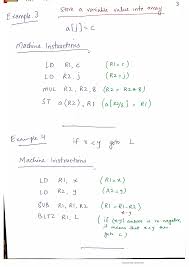 3
Example 3 Store a variable value into array
a[j] = c
Machine Instructions
LD R1, c (R1 = c)
LD R2, j (R2 = j)
MUL R2, R2, 8 (R2 = R2*8)
ST a(R2), R1 (a[R2/8] = R1)
Example 4 if x < y goto L
Machine Instructions
LD R1, x (R1 = x)
LD R2, y (R2 = y)
SUB R1, R1, R2 (R1 = R1 - R2)
x-y
BLTZ R1, L (if (x-y) answer is in negative,
it means that x < y then
goto L)